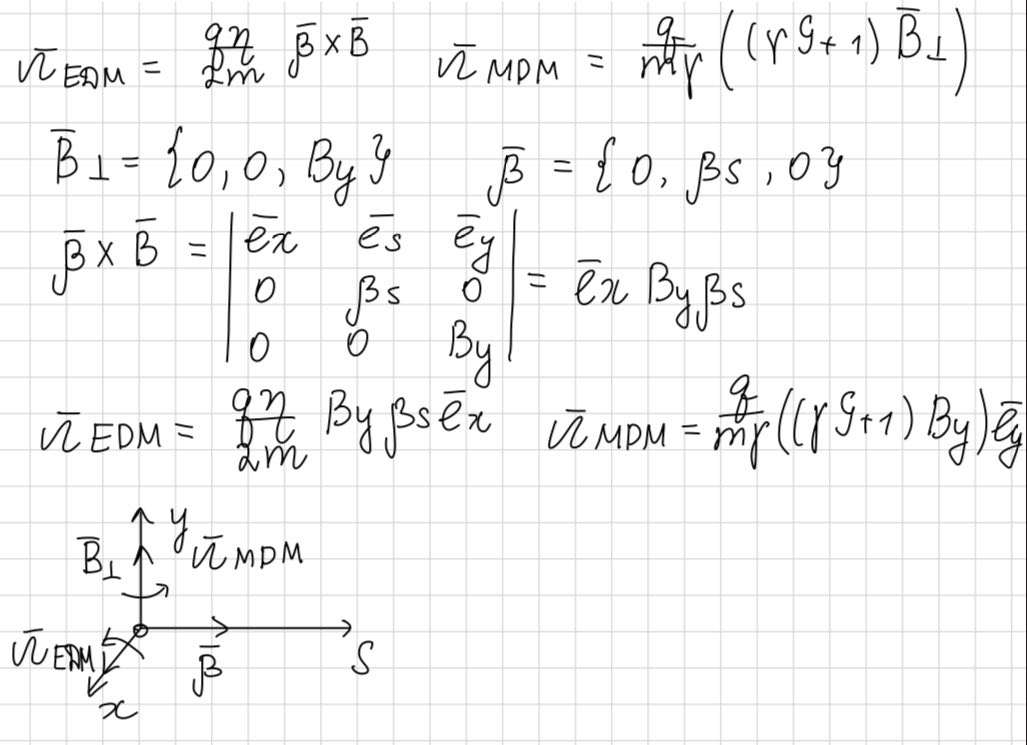 Ω̄ EDM = qη/2m β̄ × B̄    Ω̄ MDM = q/mγ ((γG+1) B̄⊥)
B̄⊥ = {0, 0, By}    β̄ = {0, βs, 0}
β̄ × B̄ = | ēx ēs ēy | = ēx By βs
| 0 βs 0 |
| 0 0 By |
Ω̄ EDM = qη/2m By βs ēx    Ω̄ MDM = q/mγ ((γG+1) By) ēy
y
B̄⊥ Ω̄ MDM
Ω̄ EDM β̄ S
x